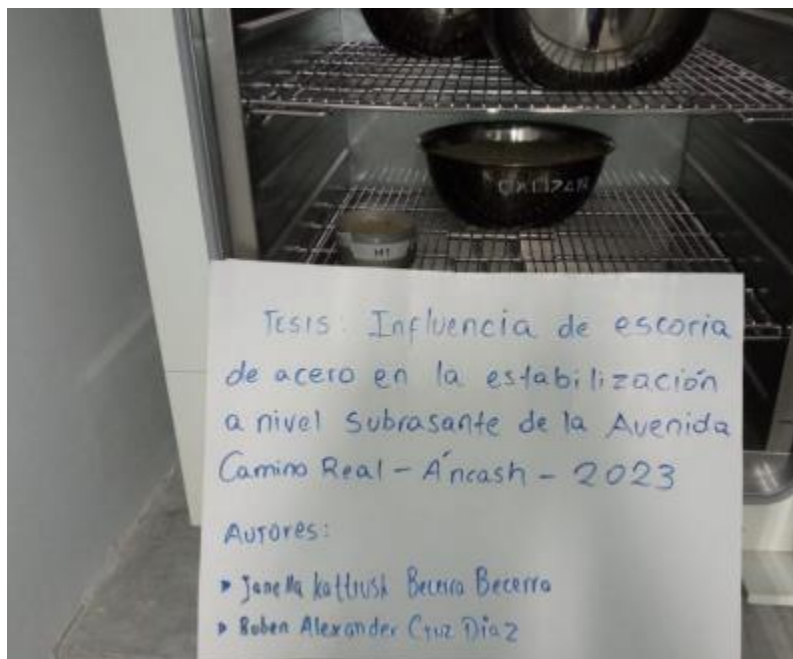 CALIZAN
M1
Tesis: Influencia de escoria
de acero en la estabilización
a nivel Subrasante de la Avenida
Camino Real - Áncash - 2023
Autores:
▸ Janella Kattrush Becerra Becerra
▸ Ruben Alexander Cruz Diaz